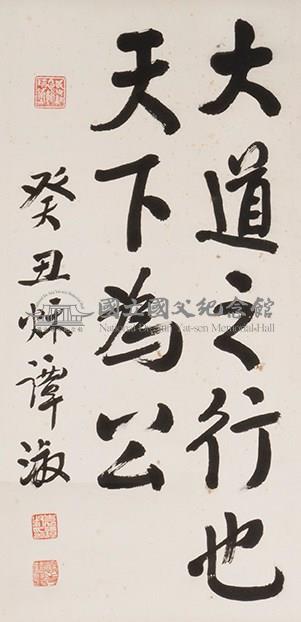 大道之行也
天下為公
癸丑秌譚淑
國立國父紀念館
National Dr. Sun Yat-sen Memorial Hall